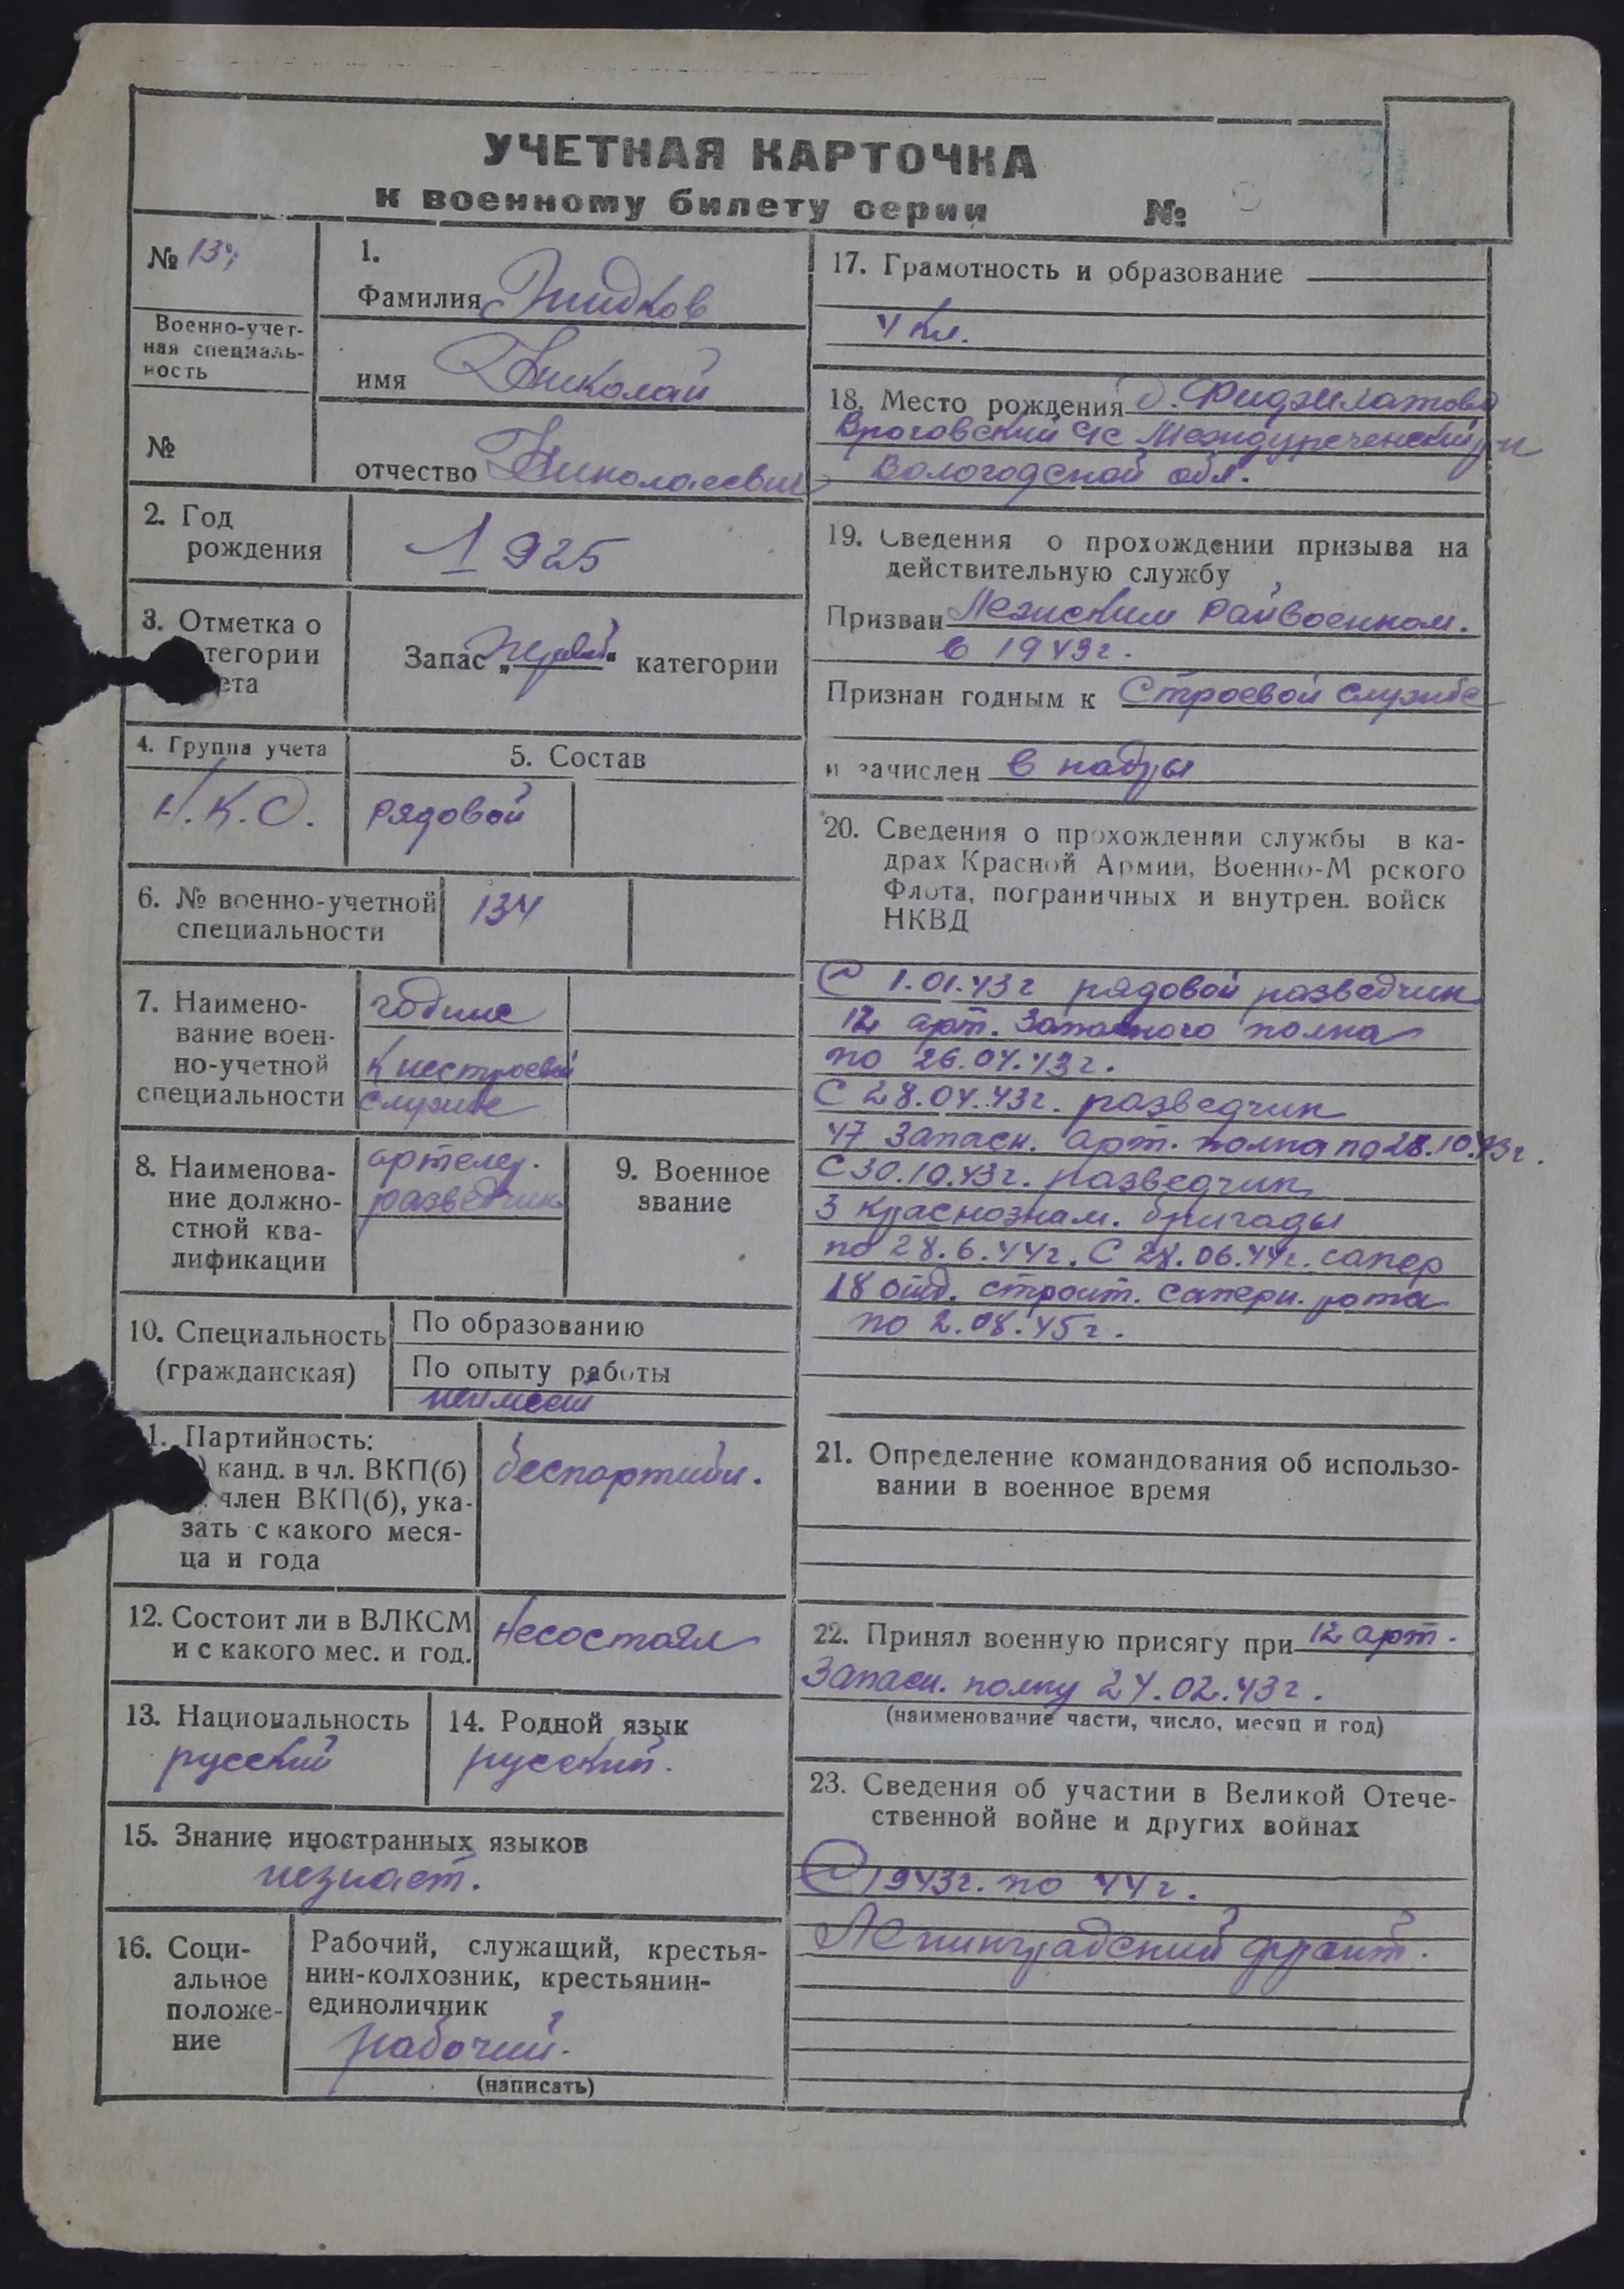 УЧЕТНАЯ КАРТОЧКА
к военному билету серии №
№ 134
Военно-учет-
ная специаль-
ность
№
1.
Фамилия Жидков
имя Николай
отчество Николаевич
2. Год
рождения
1925
3. Отметка о
тегории
ета
Запас „первой“ категории
4. Группа учета
5. Состав
Н.К.О.
рядовой
6. № военно-учетной
специальности
134
7. Наимено-
вание воен-
но-учетной
специальности
годные
к нестроевой
службе
8. Наименова-
ние должно-
стной ква-
лификации
артелер.
разведчик
9. Военное
звание
10. Специальность
(гражданская)
По образованию
По опыту работы
неимеет
1. Партийность:
) канд. в чл. ВКП(б)
член ВКП(б), ука-
зать с какого меся-
ца и года
беспартийн.
12. Состоит ли в ВЛКСМ
и с какого мес. и год.
Несостоял
13. Национальность
русский
14. Родной язык
русский.
15. Знание иностранных языков
незнает.
16. Соци-
альное
положе-
ние
Рабочий, служащий, крестья-
нин-колхозник, крестьянин-
единоличник
рабочий.
(написать)
17. Грамотность и образование
4 кл.
18. Место рождения д.
Враговский с/с Междуреченский р-н
Вологодской обл.
19. Сведения о прохождении призыва на
действительную службу
Призван Лежским Райвоенком.
в 1943г.
Признан годным к Строевой службе
и зачислен в кадры
20. Сведения о прохождении службы в ка-
драх Красной Армии, Военно-М рского
Флота, пограничных и внутрен. войск
НКВД
С 1.01.43г рядовой разведчик
12 арт. Запасного полка
по 26.04.43г.
С 28.04.43г. разведчик
47 Запасн. арт. полка по 28.10.43г.
С 30.10.43г. разведчик
3 Краснознам. бригады
по 28.6.44г. С 28.06.44г. сапер
18 отд. строит. саперн. рота
по 2.08.45г.
21. Определение командования об использо-
вании в военное время
22. Принял военную присягу при 12 арт.
Запасн. полку 24.02.43г.
(наименование части, число, месяц и год)
23. Сведения об участии в Великой Отече-
ственной войне и других войнах
С 1943г. по 44г.
Ленинградский фронт.